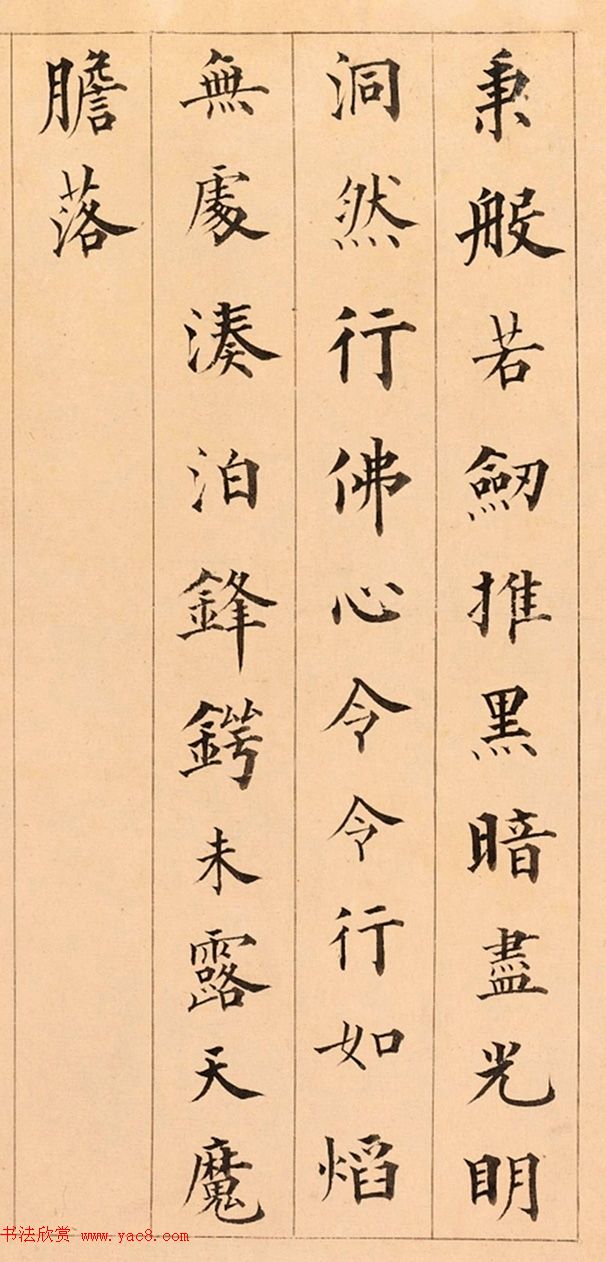 秉般若劒推黑暗盡光明
洞然行佛心令令行如熖
無處湊泊鋒鍔未露天魔
膽落
书法欣赏 www.yac8.com